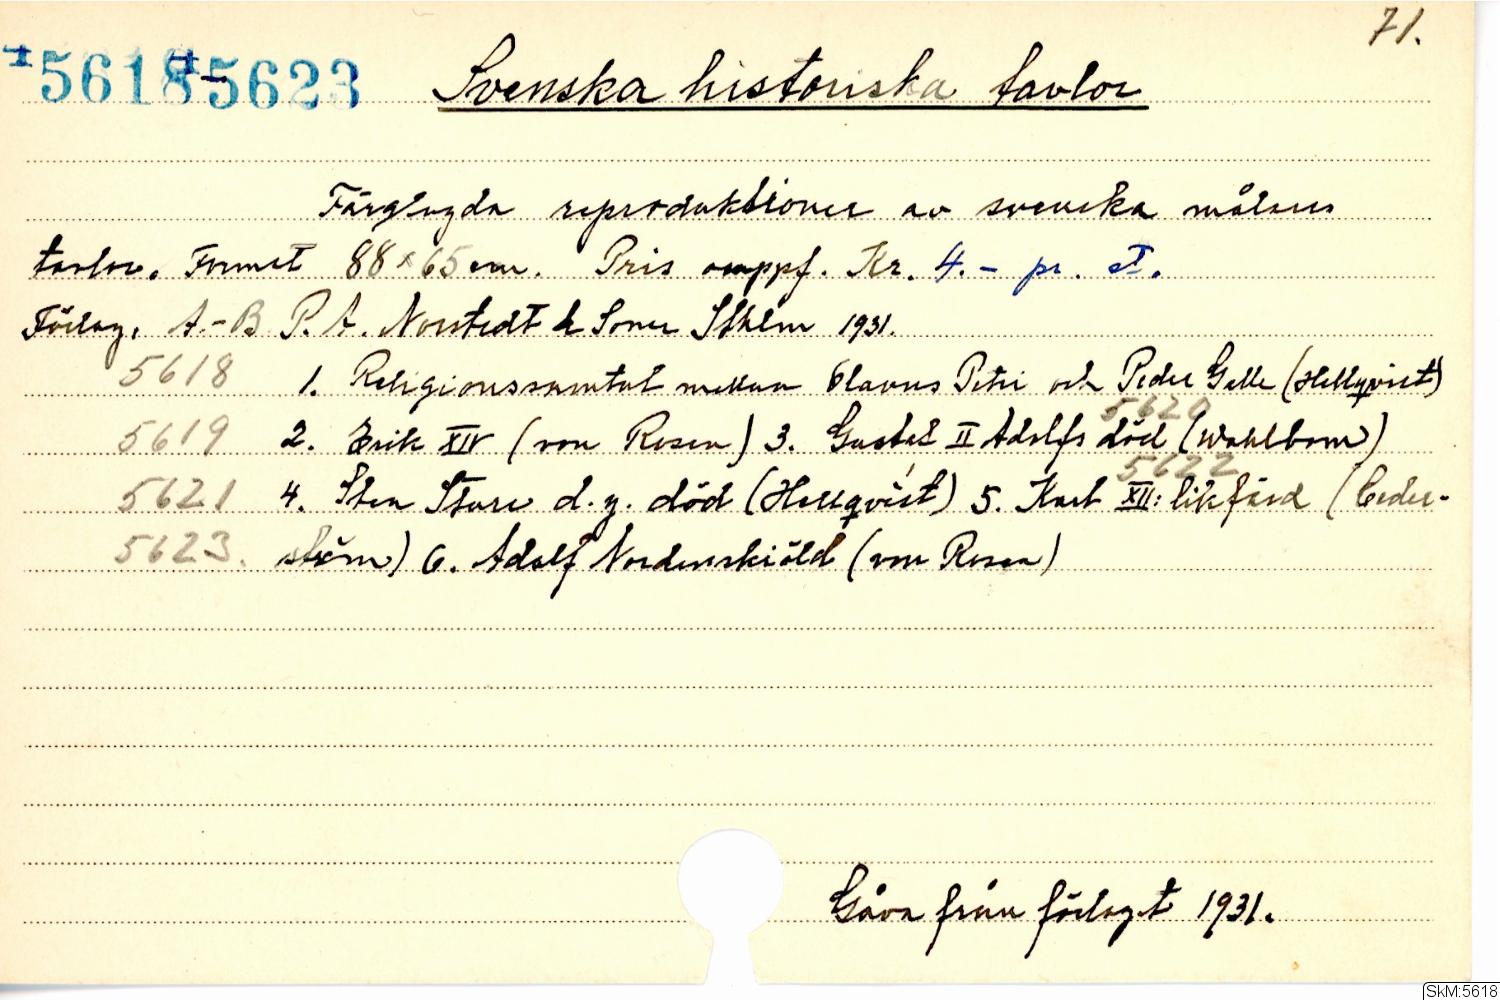 71.
5618-5623 Svenska historiska tavlor
Färglagda reproduktioner av svenska målares
tavlor. Format 88x65 cm. Pris ouppf. Kr. 4.- pr. st.
Förlag. A.-B P. A. Norstedt & Soner Sthlm 1931.
5618 1. Religionssamtal mellan Olavus Petri och Peder Galle (Hellqvist)
5620
5619 2. Erik XIV (von Rosen) 3. Gustaf II Adolfs död (Wahlbom)
5622
5621 4. Sten Sture d.y. död (Hellqvist) 5. Karl XII: likfärd (Ceder-
5623. ström) 6. Adolf Nordenskiöld (von Rosen)
Gåva från förlaget 1931.
SkM:5618